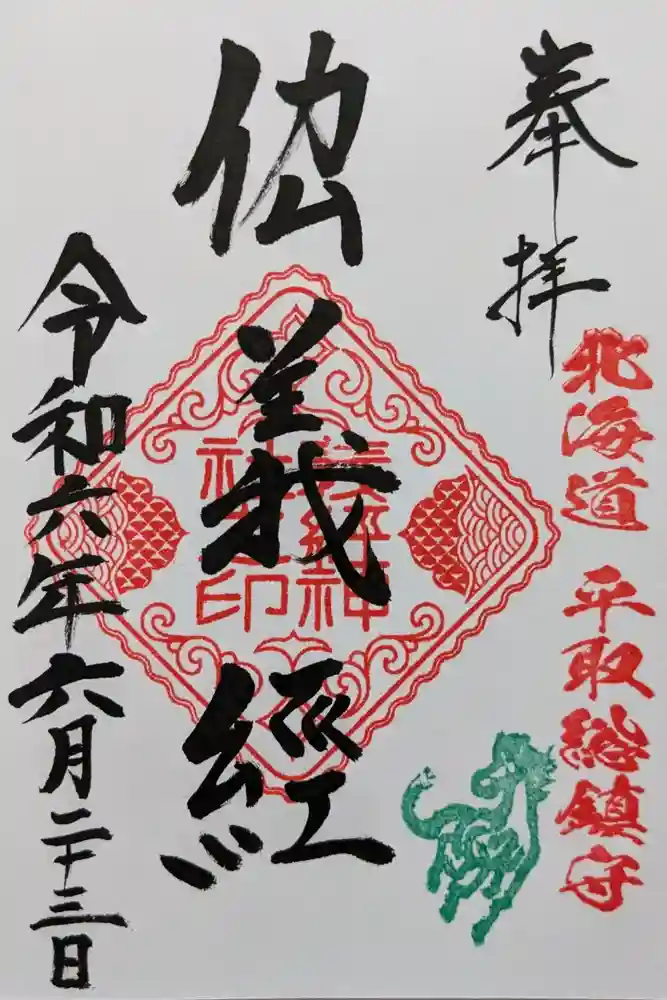 奉拝
北海道 平取総鎮守
義經
義經神
社印
令和六年六月二十三日